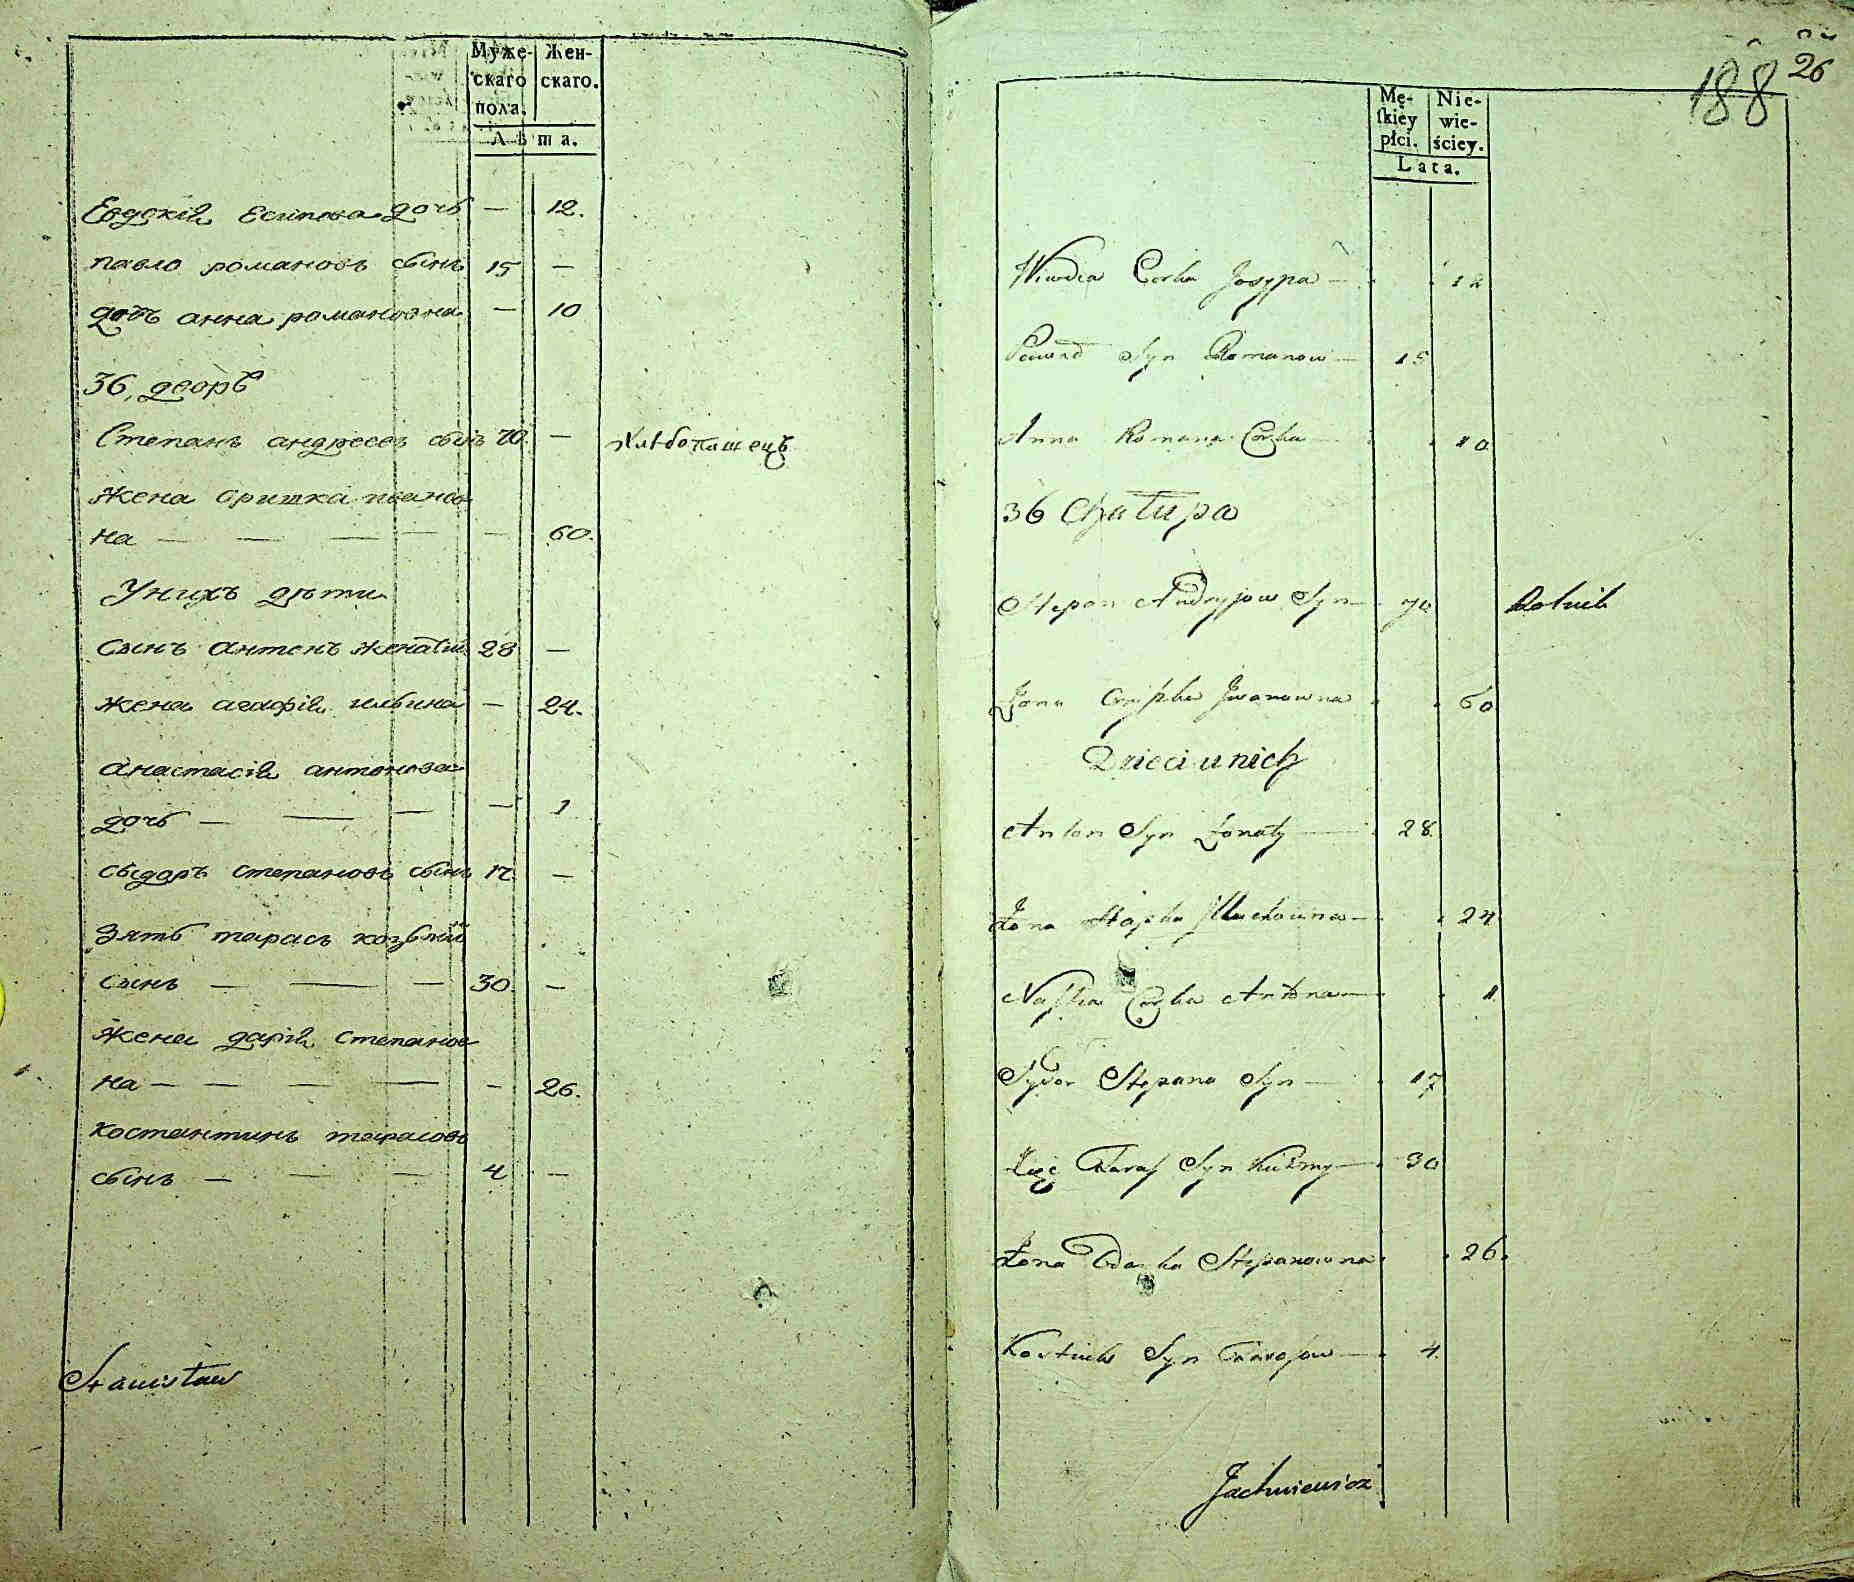 Муже-
скаго
пола.
Жен-
скаго.
Лѣта.
Евдокій Есипова дочь — 12.
павло романовъ сынъ 15 —
дочь анна романовна — 10
36, дворъ
Степанъ андреевъ сынъ 70. — хлѣбопашецъ
жена оришка иванов-
на — — — — — 60.
Унихъ дѣти
сынъ антонъ женатый 28 —
жена агафій ильина — 24.
анастасій антонова
дочь — — — — 1
сыдоръ степановъ сынъ 17. —
зять тарасъ козьмій
сынъ — — — 30. —
жена дарій степанов-
на — — — — — 26.
костантинъ тарасовъ
сынъ — — — 4 —
Stanisław
188 26
Mę-
skiey
płci.
Nie-
wie-
ściey.
Lata.
Córka Josypa — 12
Syn Romanow — 15
Anna Romana Córka 10
36 Chałupa
Stepan Andryjow Syn — 70 Rolnik
Żona Oryszka Jwanowna 60
Dzieci u nich
Anton Syn Żonaty — 28.
Żona Hapka — 24
Nastia Córka Antona — 1.
Sydor Stepana Syn — 17
Taras Syn Kuźmy — 30
Żona Odarka Stepanowna 26.
Kostiuk Syn Tarasow — 4.
Jachniewicz